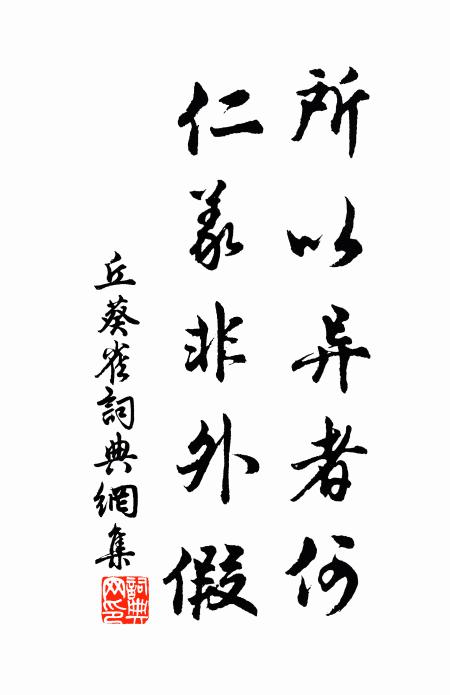 所以异者何
仁義非外假
丘葵雀詞典網集
詞典